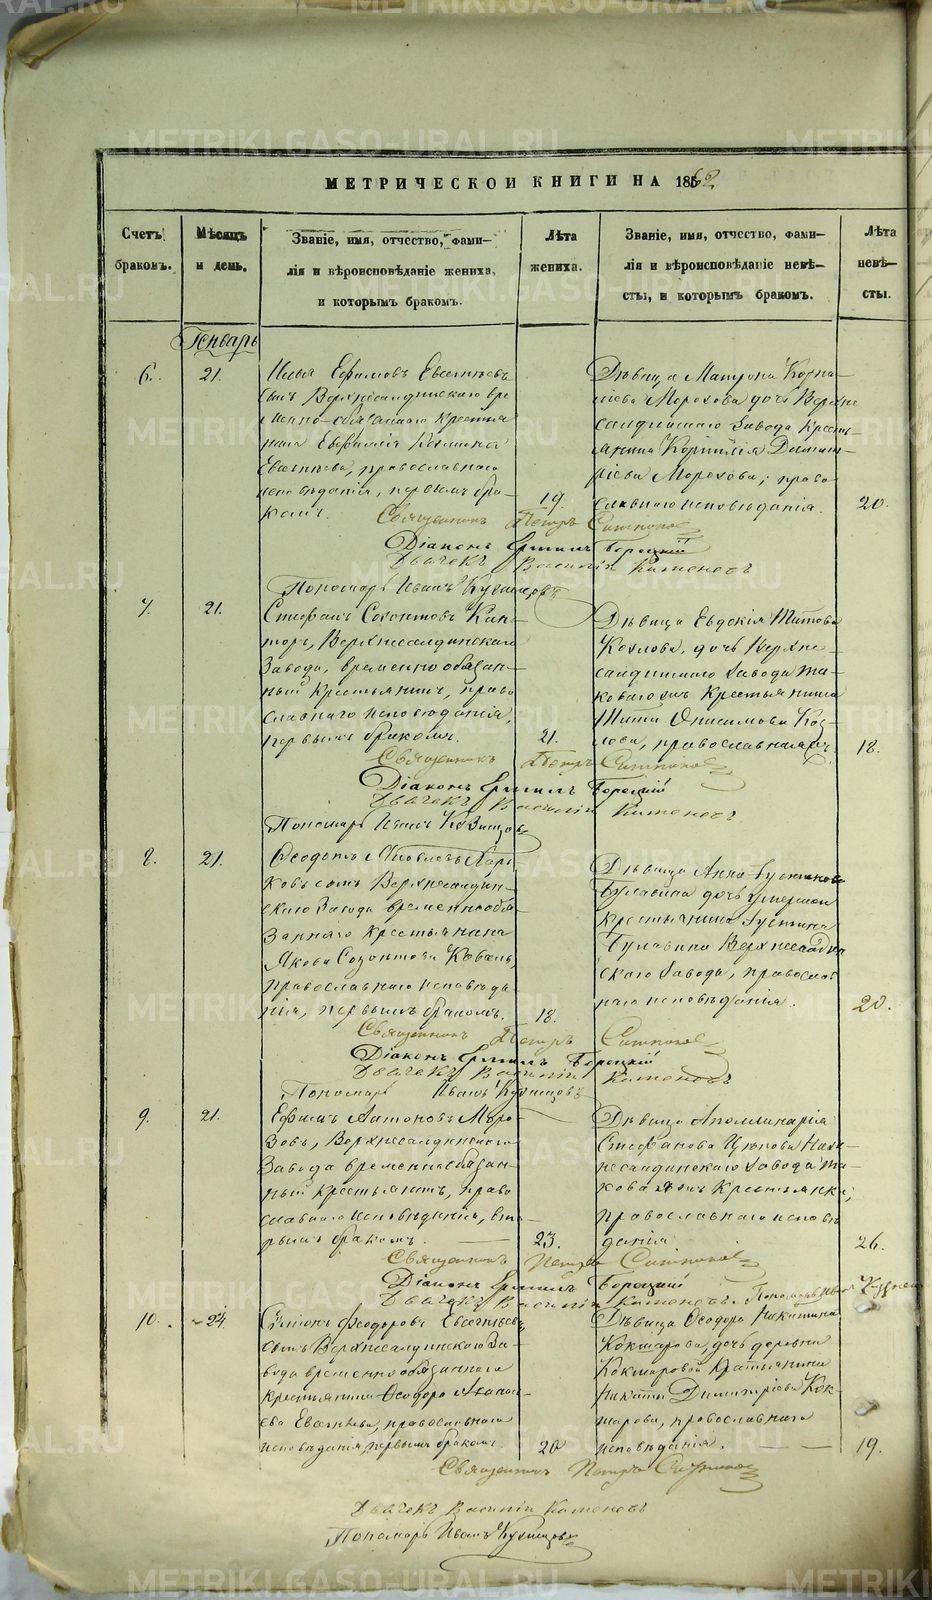 МЕТРИЧЕСКОИ КНИГИ НА 1862
Счетъ
браковъ.
Мѣсяцъ
и день.
Званіе, имя, отчество, фами-
лія и вѣроисповѣданіе жениха,
и которымъ бракомъ.
Лѣта
жениха.
Званіе, имя, отчество, фами-
лія и вѣроисповѣданіе невѣ-
сты, и которымъ бракомъ.
Лѣта
невѣ-
сты.
Генварь
6.
21.
Илья Ефимовъ Евсѣньевъ
сынъ Верхнесалдинскаго вре
менно-обязаннаго крестья
нина
Евсѣньева, православнаго
исповѣданія, первымъ бра-
комъ.
19.
Дѣвица Матрона Корни-
лiева Морохова дочь Верхне
салдинскаго Завода Кресть-
янина Корнилія Димит-
ріева Морохова, право
славнаго исповѣданія.
20.
Священникъ Петръ Ситниковъ
Діаконъ Ермилъ Борецкій
Дьячекъ Василій Каменевъ
Пономарь Иванъ Кузнецовъ
7.
21.
Стефанъ Созонтовъ Кан-
торъ, Верхнесалдинскаго
Завода, временно обязан-
ный крестьянинъ, право
славнаго исповѣданія,
первымъ бракомъ.
21.
Дѣвица Евдокія Титова
Козлова, дочь Верхне-
салдинскаго Завода та-
коваго жъ Крестьянина
Тита Онисимова Коз-
лова, православная
18.
Священникъ Петръ Ситниковъ
Діаконъ Ермилъ Борецкій
Дьячекъ Василій Каменевъ
Пономарь Иванъ Кузнецовъ
8.
21.
Ѳеодотъ Яковлевъ
сынъ Верхнесалдин-
скаго Завода временнообя-
заннаго крестьянина
Якова Созонтова
православнаго исповѣда
нія, первымъ бракомъ.
18.
Дѣвица Анна Густинова
Булавина дочь умершаго
крестьянина Густина
Булавина Верхнесалдин
скаго Завода, православ
наго исповѣданія.
20.
Священникъ Петръ Ситниковъ
Діаконъ Ермилъ Борецкій
Дьячекъ Василій Каменевъ
Пономарь Иванъ Кузнецовъ
9.
21.
Ефимъ Антоновъ Моро
зовъ, Верхнесалдинскаго
Завода временнообязан-
ный крестьянинъ, право
славнаго исповѣданія, вто-
рымъ бракомъ.
23.
Дѣвица Аполлинарія
Стефанова
несалдинскаго Завода та-
кова жъ Крестьянка,
православнаго исповѣ
данія
26.
Священникъ Петръ Ситниковъ
Діаконъ Ермилъ Борецкій
Дьячекъ Василій Каменевъ. Пономарь Иванъ
10.
24
Симеонъ Ѳеодоровъ Евсѣньевъ
сынъ Верхнесалдинскаго За-
вода временнообязаннаго
крестьянина Ѳеодора Афанас-
ьева Евсѣньева, православнаго
исповѣданія, первымъ бракомъ
20
Дѣвица Ѳеодора Никитина
Кокшарова, дочь деревни
Кокшаровой Крестьянина
Никиты Димитріева Кок-
шарова, православнаго
исповѣданія.
19.
Священникъ Петръ Ситниковъ
Дьячекъ Василій Каменевъ
Пономарь Иванъ Кузнецовъ
METRIKI.GASO-URAL.RU